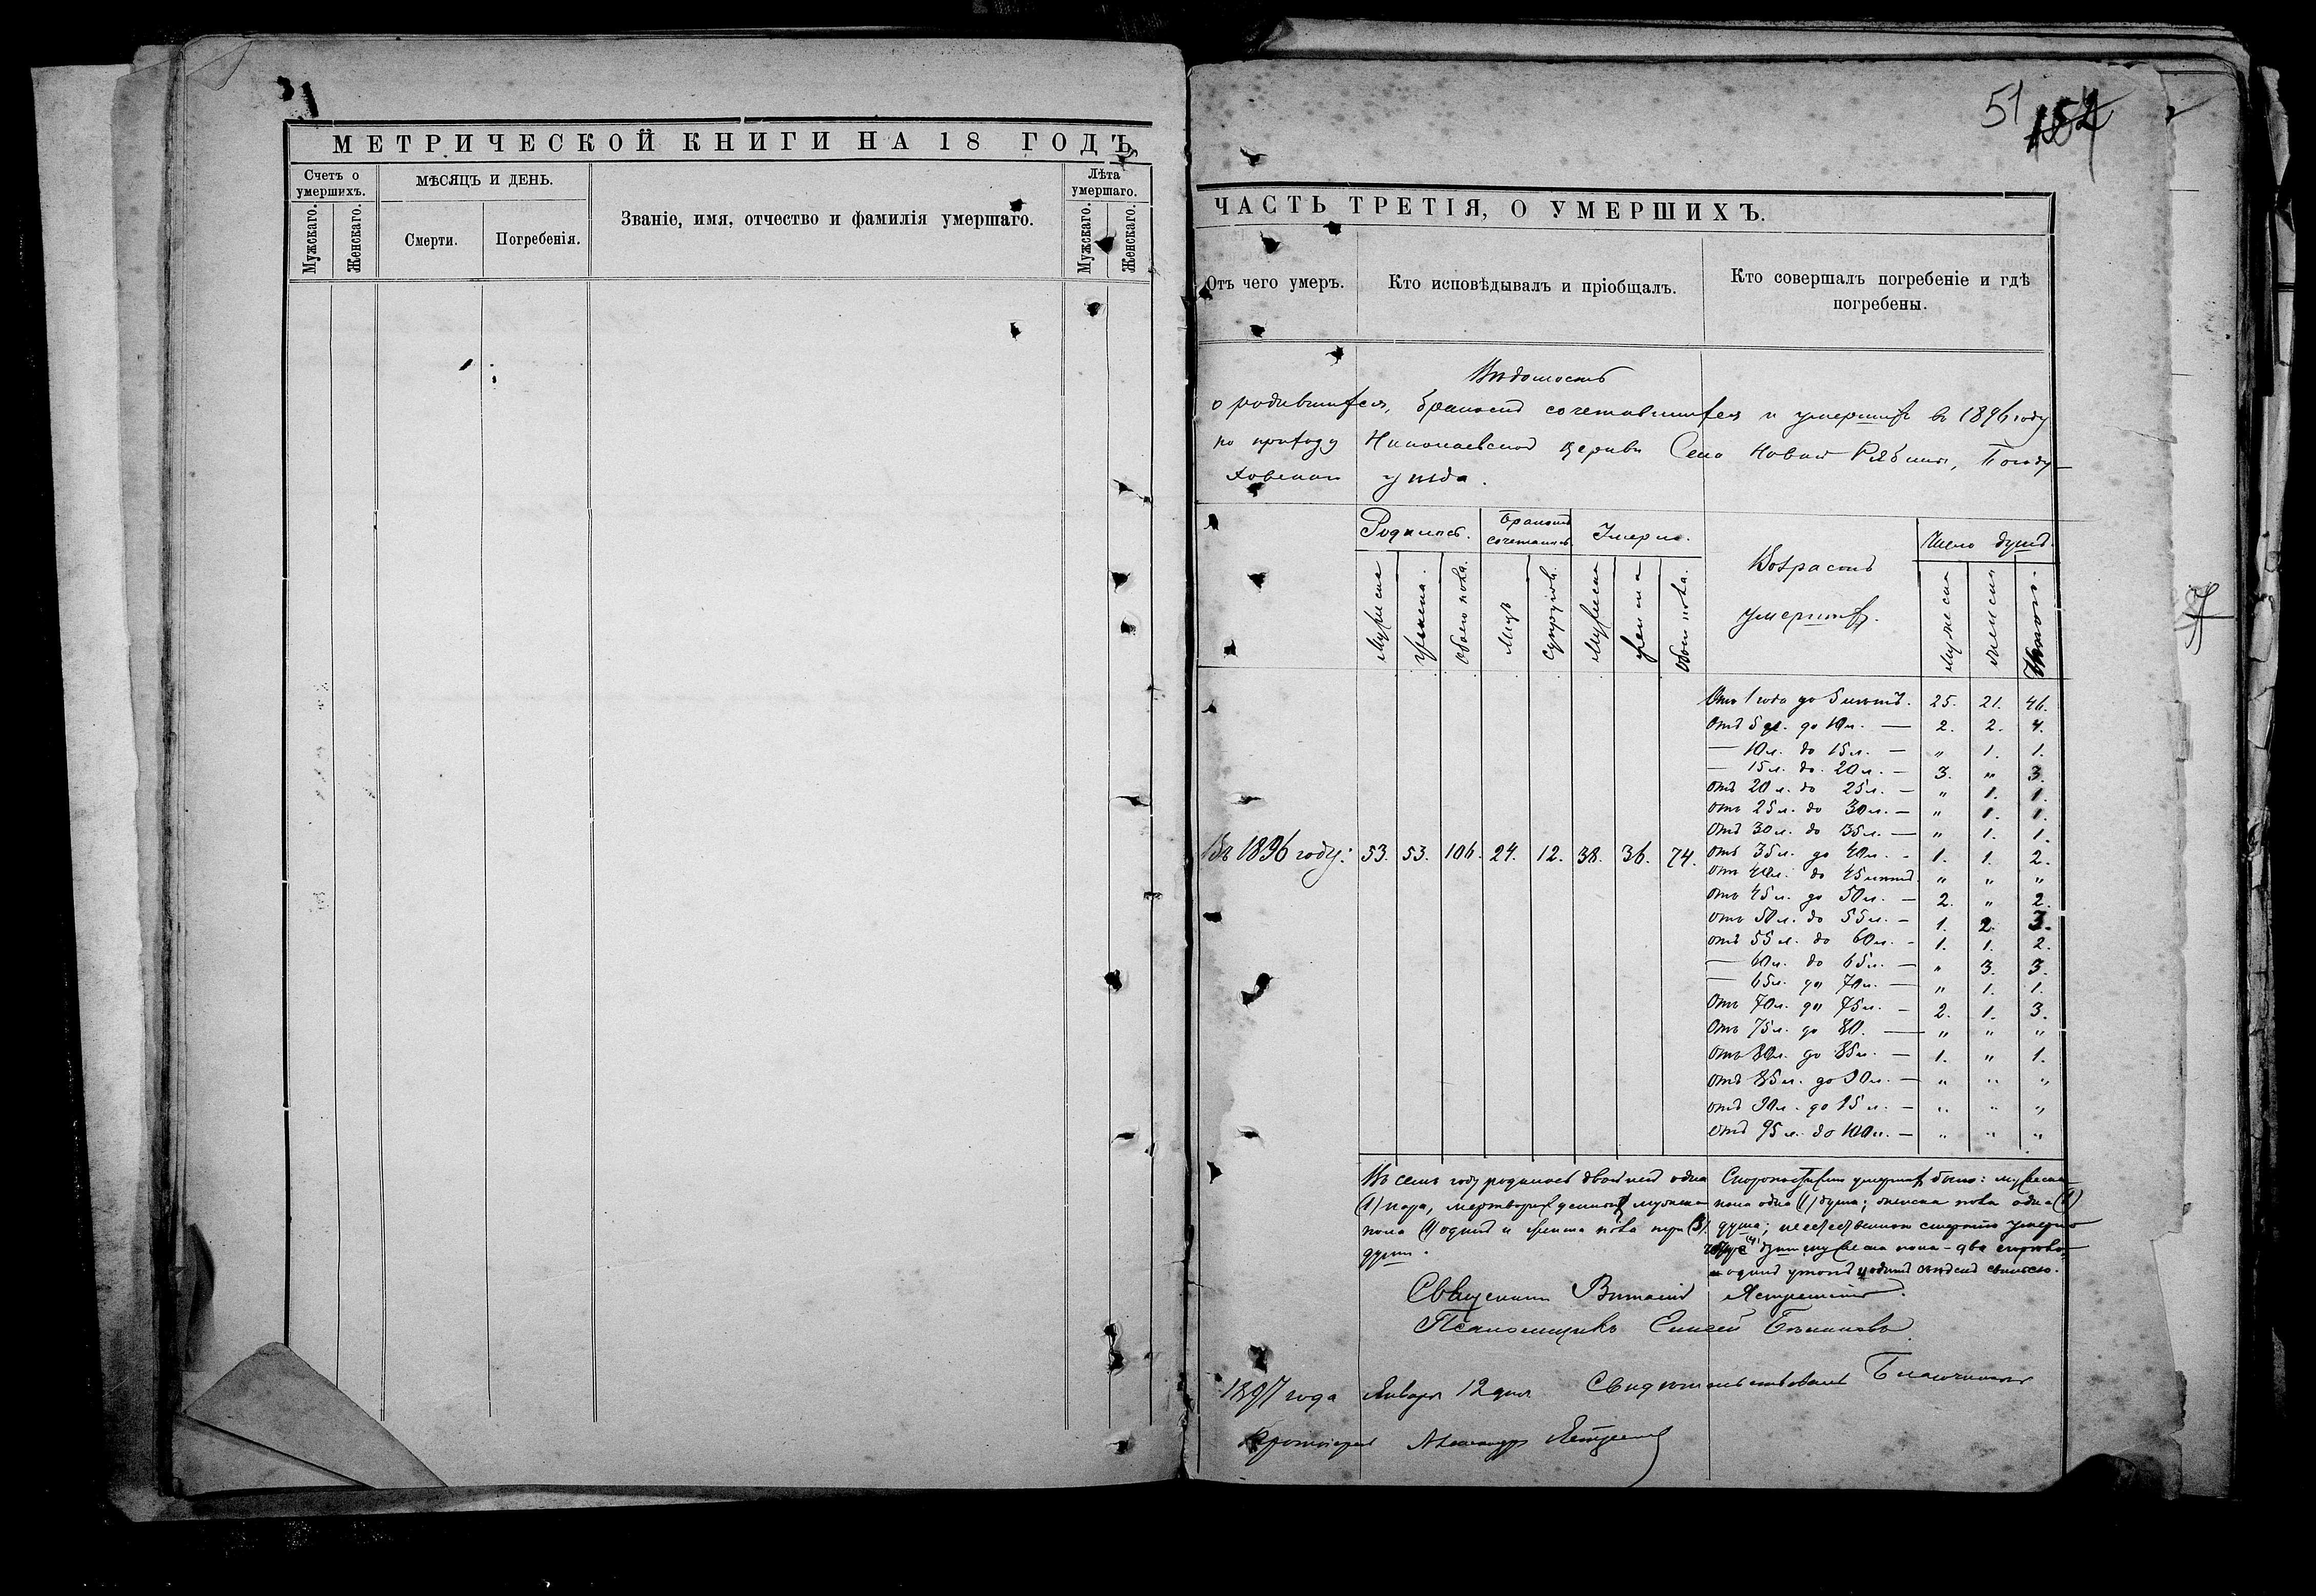 МЕТРИЧЕСКОЙ КНИГИ НА 18 ГОДЪ
Счетъ о умершихъ.
Мужскаго.
Женскаго.
МѢСЯЦЪ И ДЕНЬ.
Смерти.
Погребенія.
Званіе, имя, отчество и фамилія умершаго.
Лѣта умершаго.
Мужскаго.
Женскаго.
51
ЧАСТЬ ТРЕТІЯ, О УМЕРШИХЪ.
Отъ чего умеръ.
Кто исповѣдывалъ и пріобщалъ.
Кто совершалъ погребеніе и гдѣ
погребены.
Вѣдомость
о родившихся, бракомъ сочетавшихся и умершихъ въ 1896 году
по приходу Николаевской церкви Села Новой Рябины, Богоду-
ховскаго уѣзда.
Родилось.
Бракомъ
сочеталось.
Умерло.
Возрастъ
умершихъ.
Число душъ.
Мужеска
женска
обоего пола.
Мужеска
женска
обоего пола.
мужеска
женска
Итого.
Отъ 1 года до 5 лѣтъ. 25. 21. 46.
Отъ 5 л. до 10 л. — 2. 2. 4.
— 10 л. до 15 л. — „ 1. 1.
— 15 л. до 20 л. — 3. „ 3.
отъ 20 л. до 25 л. — „ 1. 1.
отъ 25 л. до 30 л. — „ 1. 1.
отъ 30 л. до 35 л. — „ 1. 1.
Въ 1896 году: 53. 53. 106. 24. 12. 38. 36. 74.
отъ 35 л. до 40 л. - 1. 1. 2.
отъ 40 л. до 45 лѣтъ. „ „ „
отъ 45 л. до 50 л. — 2. „ 2.
отъ 50 л. до 55 л. — 1. 2. 3.
отъ 55 л. до 60 л. - 1. 1. 2.
— 60 л. до 65 л. — „ 3. 3.
— 65 л. до 70 л. — „ 1. 1.
Отъ 70 л. до 75 л. — 2. 1. 3.
Отъ 75 л. до 80. — „ „ „
Отъ 80 л. до 85 л. — 1. „ 1.
отъ 85 л. до 90 л. — „ „ „
отъ 90 л. до 95 л. — „ „ „
отъ 95 л. до 100 л. — „ „ „
Въ семъ году родилось двойней одна
(1) пара, мертворожденныхъ мужска
пола (1) одинъ и женска пола три (3).
души.
Скоропостижно умершихъ было: мужеска
пола одна (1) душа; женска пола одна (1)
душа; неестественною смертію умерло
душ мужеска пола - два
одинъ и одинъ съѣденъ свиньею.
Священникъ Виталій Ястремскій.
Псаломщикъ Елисей
1897 года Января 12 дня Свидѣтельствовалъ Благочинный
Протоіерей Александръ Ястремскій